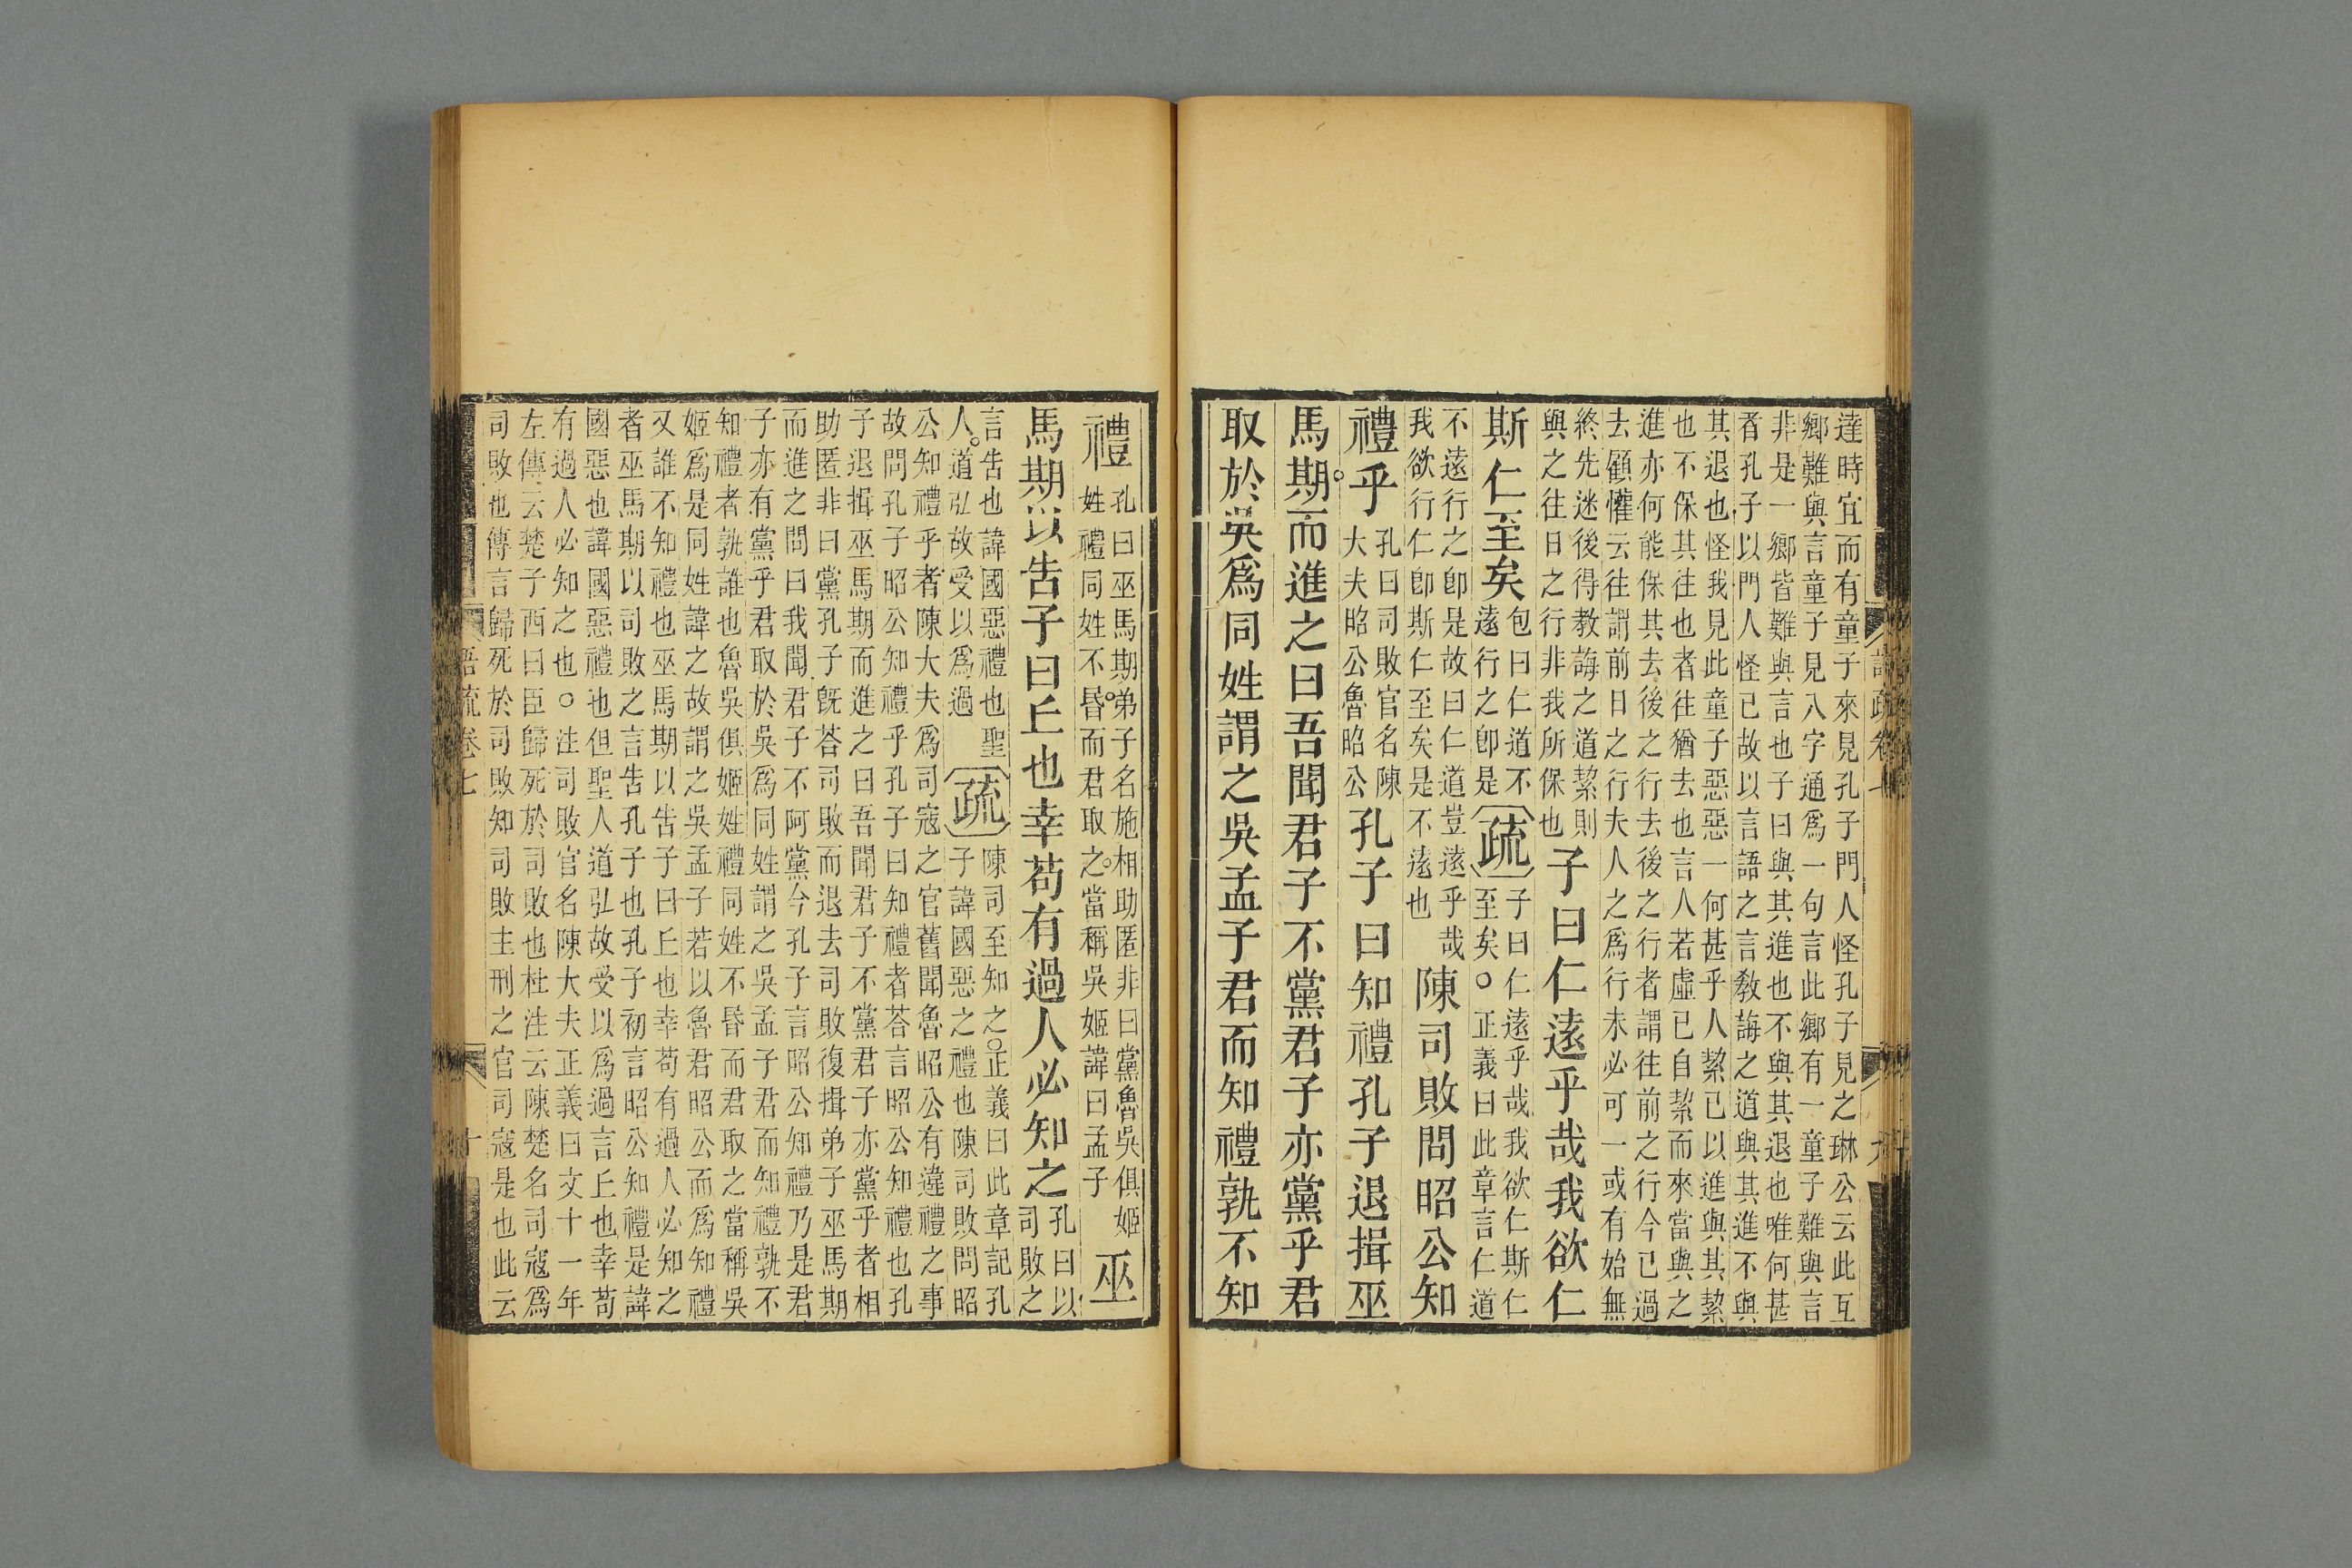 達時宜而有童子來見孔子門人怪孔子見之琳公云此互
鄉難與言童子見八字通爲一句言此鄉有一童子難與言
非是一鄉皆難與言也子曰與其進也不與其退也唯何甚
者孔子以門人怪已故以言語之言教誨之道與其進不與
其退也怪我見此童子惡惡一何甚乎人絜已以進與其絜
也不保其往也者往猶去也言人若虛已自絜而來當與之
進亦何能保其去後之行去後之行者謂往前之行今已過
去顧懽云往謂前日之行夫人之爲行未必可一或有始無
終先迷後得教誨之道絜則
與之往日之行非我所保也
子曰仁遠乎哉我欲仁
斯仁至矣
包曰仁道不
遠行之卽是
疏
子曰仁遠乎哉我欲仁斯仁
至矣○正義曰此章言仁道
不遠行之卽是故曰仁道豈遠乎哉
我欲行仁卽斯仁至矣是不遠也
陳司敗問昭公知
禮乎
孔曰司敗官名陳
大夫昭公魯昭公
孔子曰知禮孔子退揖巫
馬期而進之曰吾聞君子不黨君子亦黨乎君
取於吳爲同姓謂之吳孟子君而知禮孰不知
禮
孔曰巫馬期弟子名施相助匿非曰黨魯吳俱姬
姓禮同姓不昬而君取之當稱吳姬諱曰孟子
巫
馬期以告子曰丘也幸苟有過人必知之
孔曰以
司敗之
言告也諱國惡禮也聖
人道弘故受以爲過
疏
陳司至知之○正義曰此章記孔
子諱國惡之禮也陳司敗問昭
公知禮乎者陳大夫爲司寇之官舊聞魯昭公有違禮之事
故問孔子昭公知禮乎孔子曰知禮者荅言昭公知禮也孔
子退揖巫馬期而進之曰吾聞君子不黨君子亦黨乎者相
助匿非曰黨孔子旣荅司敗而退去司敗復揖弟子巫馬期
而進之問曰我聞君子不阿黨今孔子言昭公知禮乃是君
子亦有黨乎君取於吳爲同姓謂之吳孟子君而知禮孰不
知禮者孰誰也魯吳俱姬姓禮同姓不昬而君取之當稱吳
姬爲是同姓諱之故謂之吳孟子若以魯君昭公而爲知禮
又誰不知禮也巫馬期以告子曰丘也幸苟有過人必知之
者巫馬期以司敗之言告孔子也孔子初言昭公知禮是諱
國惡也諱國惡禮也但聖人道弘故受以爲過言丘也幸苟
有過人必知之也○注司敗官名陳大夫正義曰文十一年
左傳云楚子西曰臣歸死於司敗也杜注云陳楚名司寇爲
司敗也傳言歸死於司敗知司敗主刑之官司寇是也此云